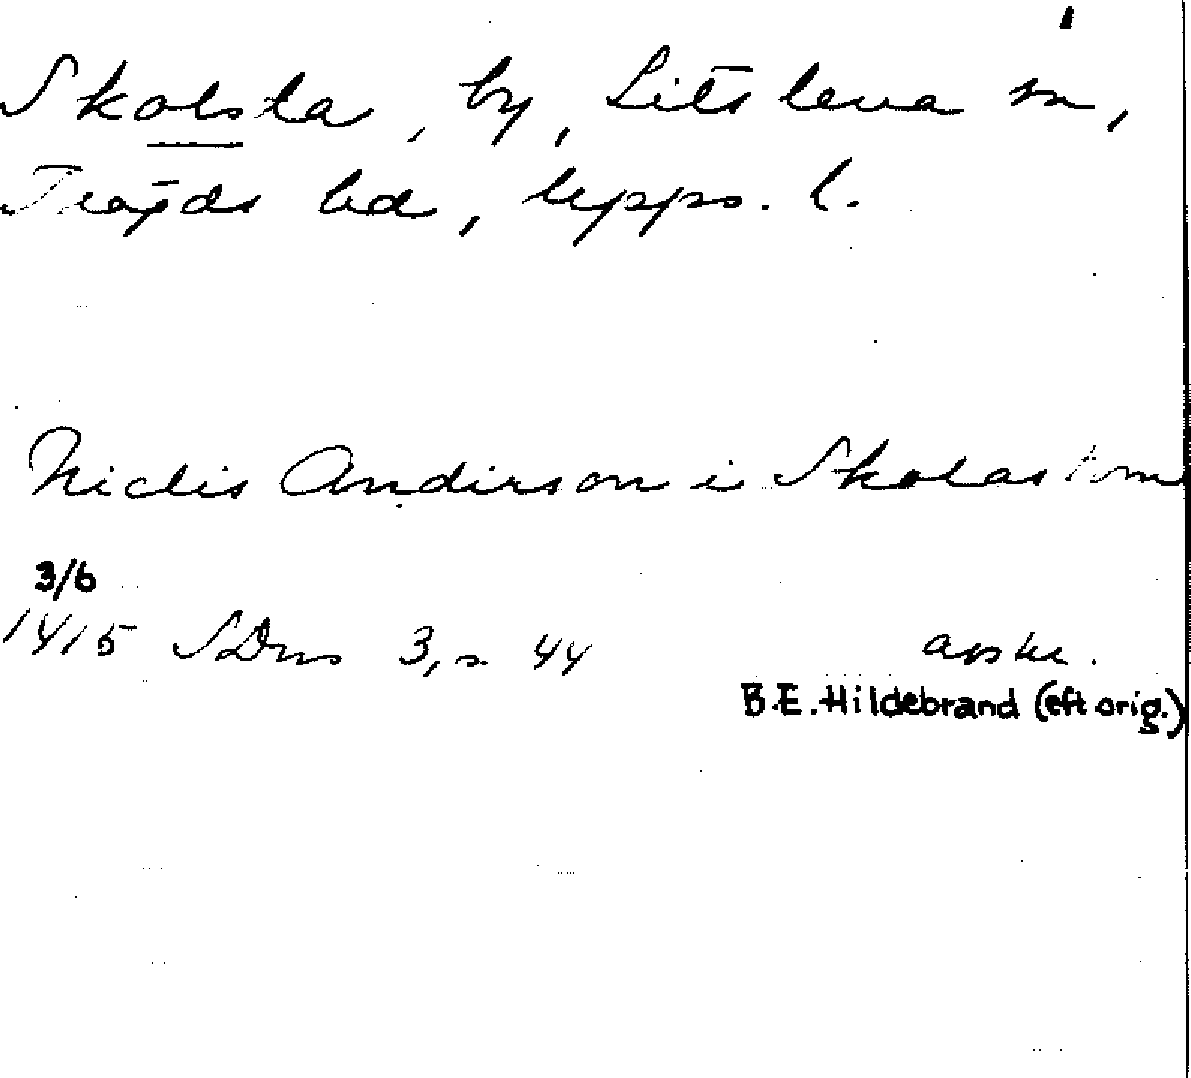 Skolsta, by, Litslena sn,
Trögds hd, Upps. l.
Niclis Andirson i Skolastom
3/6
1415 SDns 3, s. 44 avskr.
B.E. Hildebrand (eft orig.)